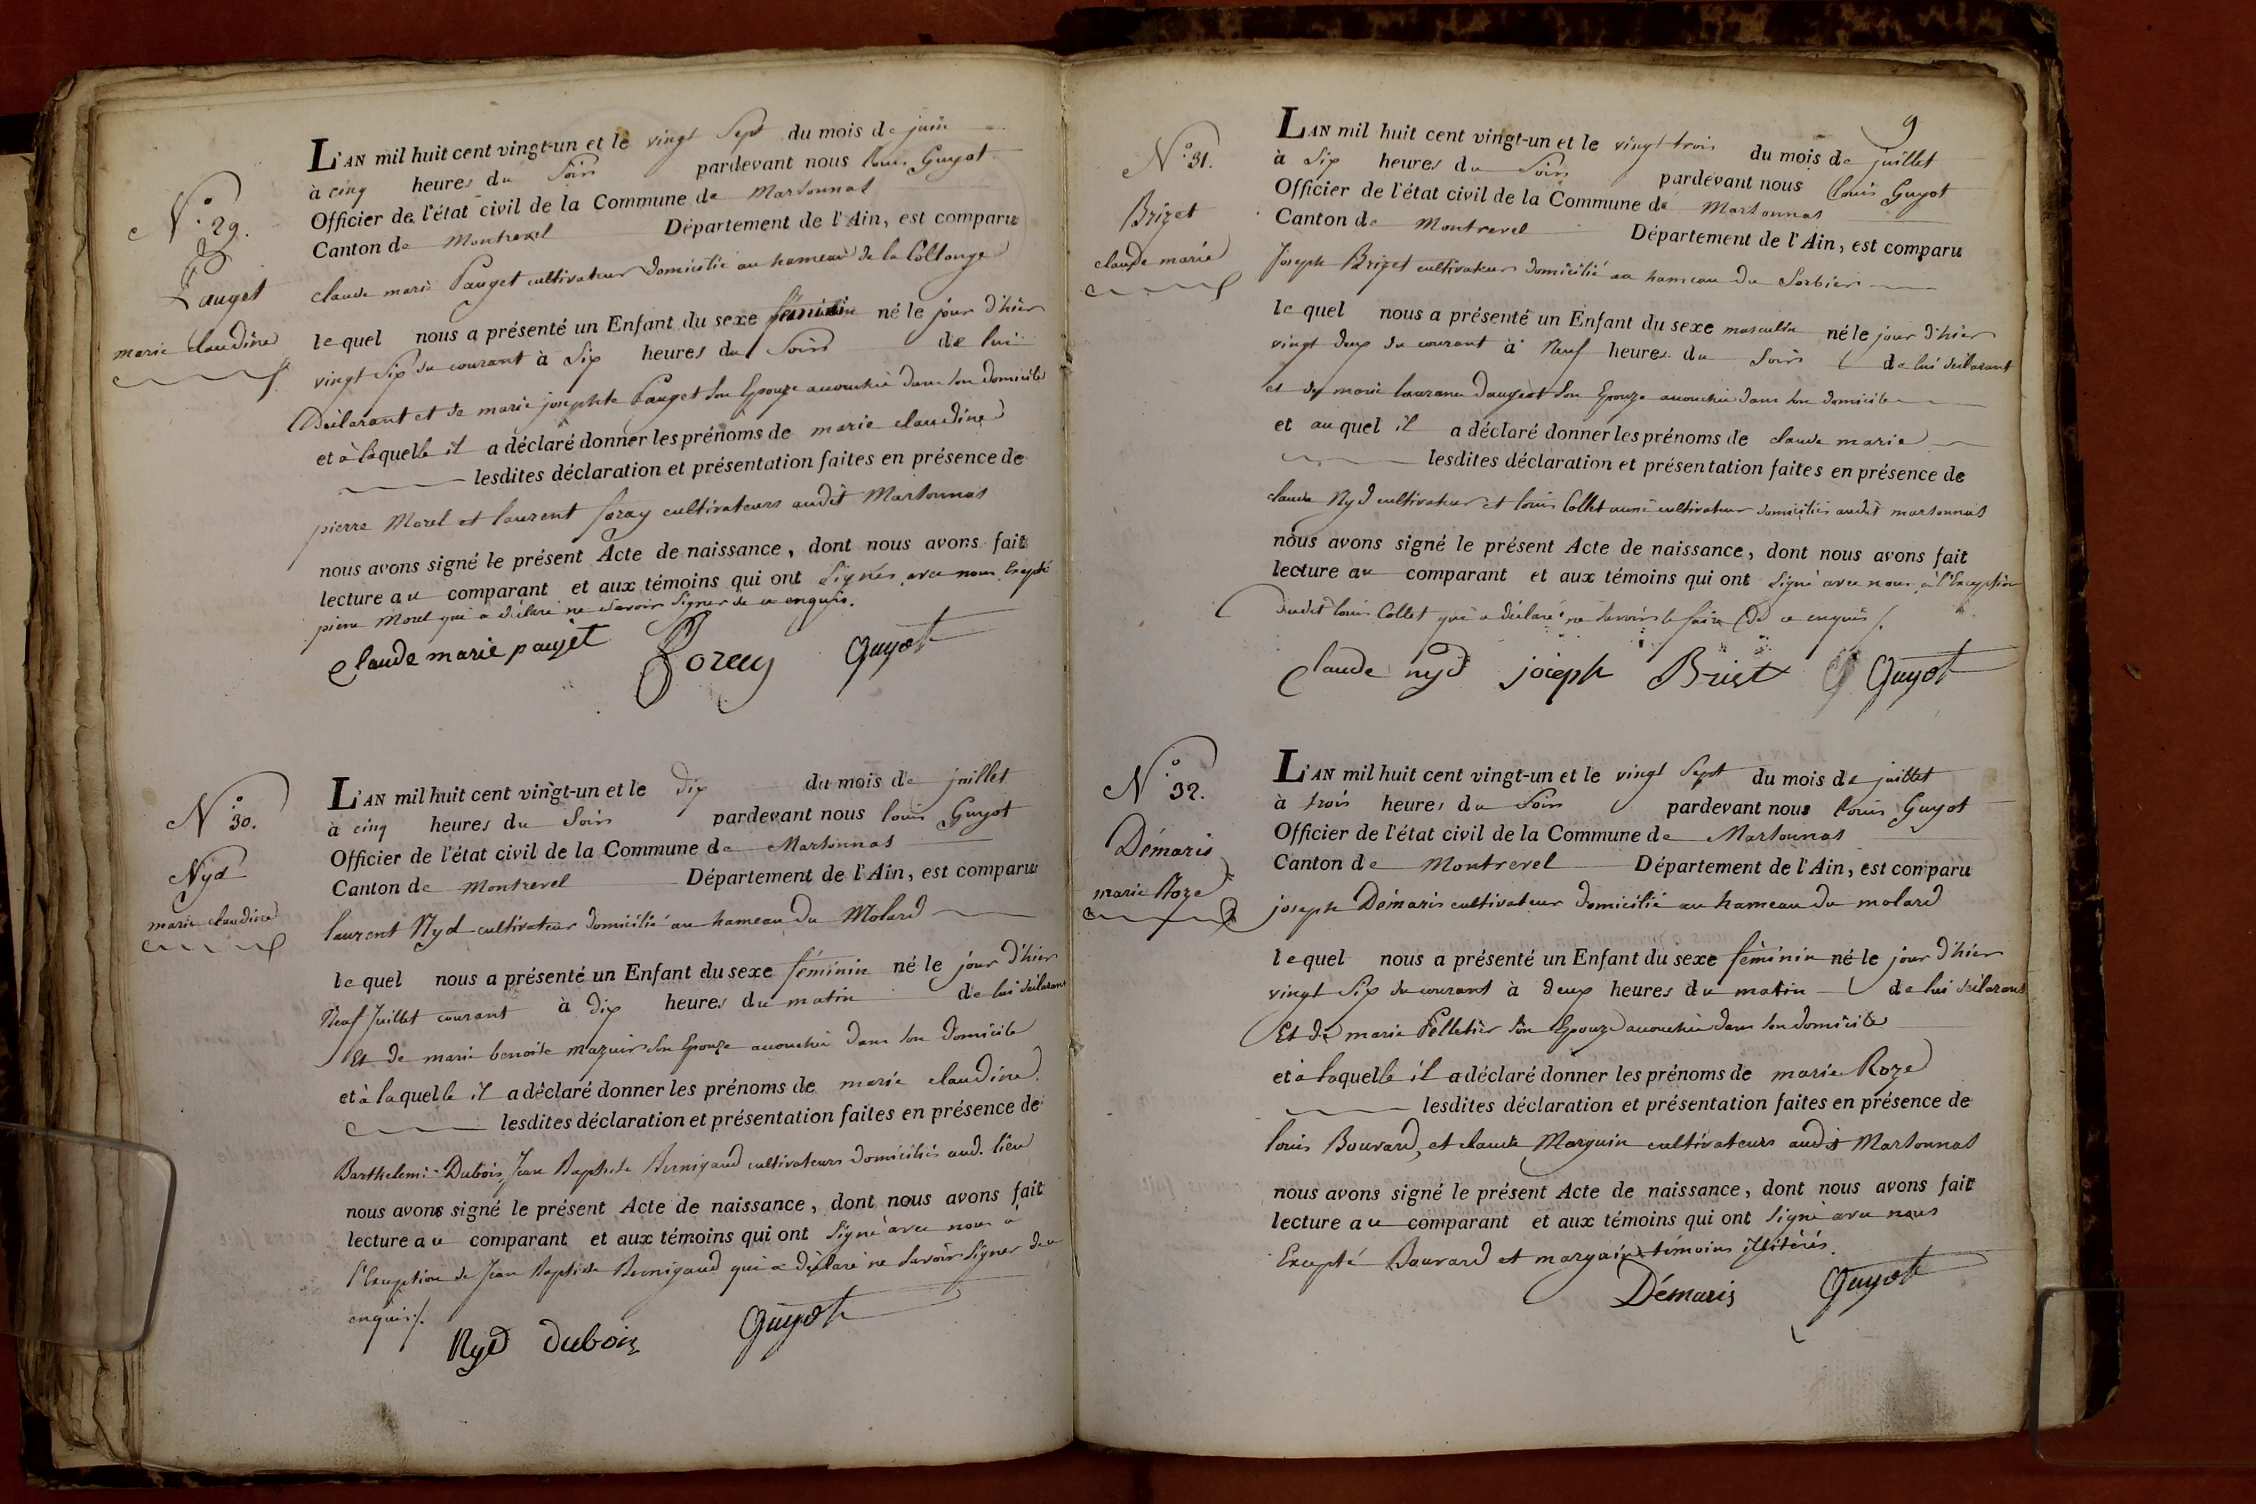 N.° 29.
Pauget
marie claudine
L'AN mil huit cent vingt-un et le vingt sept du mois de juin
à cinq heures du Soir pardevant nous louis Guyot
Officier de l'état civil de la Commune de Marsonnas
Canton de Montrevel Département de l'Ain, est comparu
claude marie Pauget cultivateur domicilié au hameau de la Collonge
lequel nous a présenté un Enfant du sexe féminin né le jour d'hier
vingt Six du courant à Six heures du Soir de lui
Déclarant et de marie josephte Pauget Son Epouze accouchée dans Son domicile
et à laquelle il a déclaré donner les prénoms de marie claudine
lesdites déclaration et présentation faites en présence de
pierre Morel et laurent foray cultivateurs audit Marsonnas
nous avons signé le présent Acte de naissance, dont nous avons fait
lecture au comparant et aux témoins qui ont Signés avec nous Excepté
pierre Morel qui a déclaré ne Savoir Signer de ce enquis.
Claude marie pauget Foray Guyot
N.° 30.
Nyd
marie claudine
L'AN mil huit cent vingt-un et le dix du mois de juillet
à cinq heures du Soir pardevant nous louis Guyot
Officier de l'état civil de la Commune de Marsonnas
Canton de Montrevel Département de l'Ain, est comparu
laurent Nyd cultivateur domicilié au hameau du Molard
lequel nous a présenté un Enfant du sexe féminin né le jour d'hier
Neuf Juillet courant à dix heures du matin de lui déclarant
Et de marie benoite mazuir Son Epouze accouchée dans Son domicile
et à laquelle il a déclaré donner les prénoms de marie claudine
lesdites déclaration et présentation faites en présence de
Barthelemi Dubois, Jean Baptiste Bernigaud cultivateurs domiciliés aud. lieu
nous avons signé le présent Acte de naissance, dont nous avons fait
lecture au comparant et aux témoins qui ont Signé avec nous à
l'Exception de Jean Baptiste Bernigaud qui a déclaré ne Savoir Signer de ce
enquis /.
Nyd Dubois Guyot
9
N.° 31.
Brizet
claude marie
L'AN mil huit cent vingt-un et le vingt trois du mois de juillet
à Six heures du Soir pardevant nous louis Guyot
Officier de l'état civil de la Commune de Marsonnas
Canton de Montrevel Département de l'Ain, est comparu
Joseph Brizet cultivateur domicilié au hameau du Sorbier
lequel nous a présenté un Enfant du sexe masculin né le jour d'hier
vingt deux du courant à Neuf heures du Soir de lui déclarant
et de marie laurance daujeat Son Epouze accouchée dans Son domicile
et auquel il a déclaré donner les prénoms de claude marie
lesdites déclaration et présentation faites en présence de
claude Nyd cultivateur et louis Collet aussi cultivateur domiciliés audit marsonnas
nous avons signé le présent Acte de naissance, dont nous avons fait
lecture au comparant et aux témoins qui ont Signé avec nous à l'Exception
dudit louis Collet qui a déclaré ne Savoir le faire (de ce enquis /.
Claude nyd joseph Briset Guyot
N.° 32.
Démaris
marie Roze
L'AN mil huit cent vingt-un et le vingt Sept du mois de juillet
à trois heures du Soir pardevant nous louis Guyot
Officier de l'état civil de la Commune de Marsonnas
Canton de Montrevel Département de l'Ain, est comparu
joseph Démaris cultivateur domicilié au hameau du molard
lequel nous a présenté un Enfant du sexe féminin né le jour d'hier
vingt Six du courant à deux heures du matin de lui déclarant
Et de marie Pelletier Son Epouze accouchée dans Son domicile
et à laquelle il a déclaré donner les prénoms de marie Roze
lesdites déclaration et présentation faites en présence de
louis Bouvard, et claude Marguin cultivateurs audit Marsonnas
nous avons signé le présent Acte de naissance, dont nous avons fait
lecture au comparant et aux témoins qui ont Signé avec nous
Excepté Bouvard et marguin témoins illitérés.
Démaris Guyot